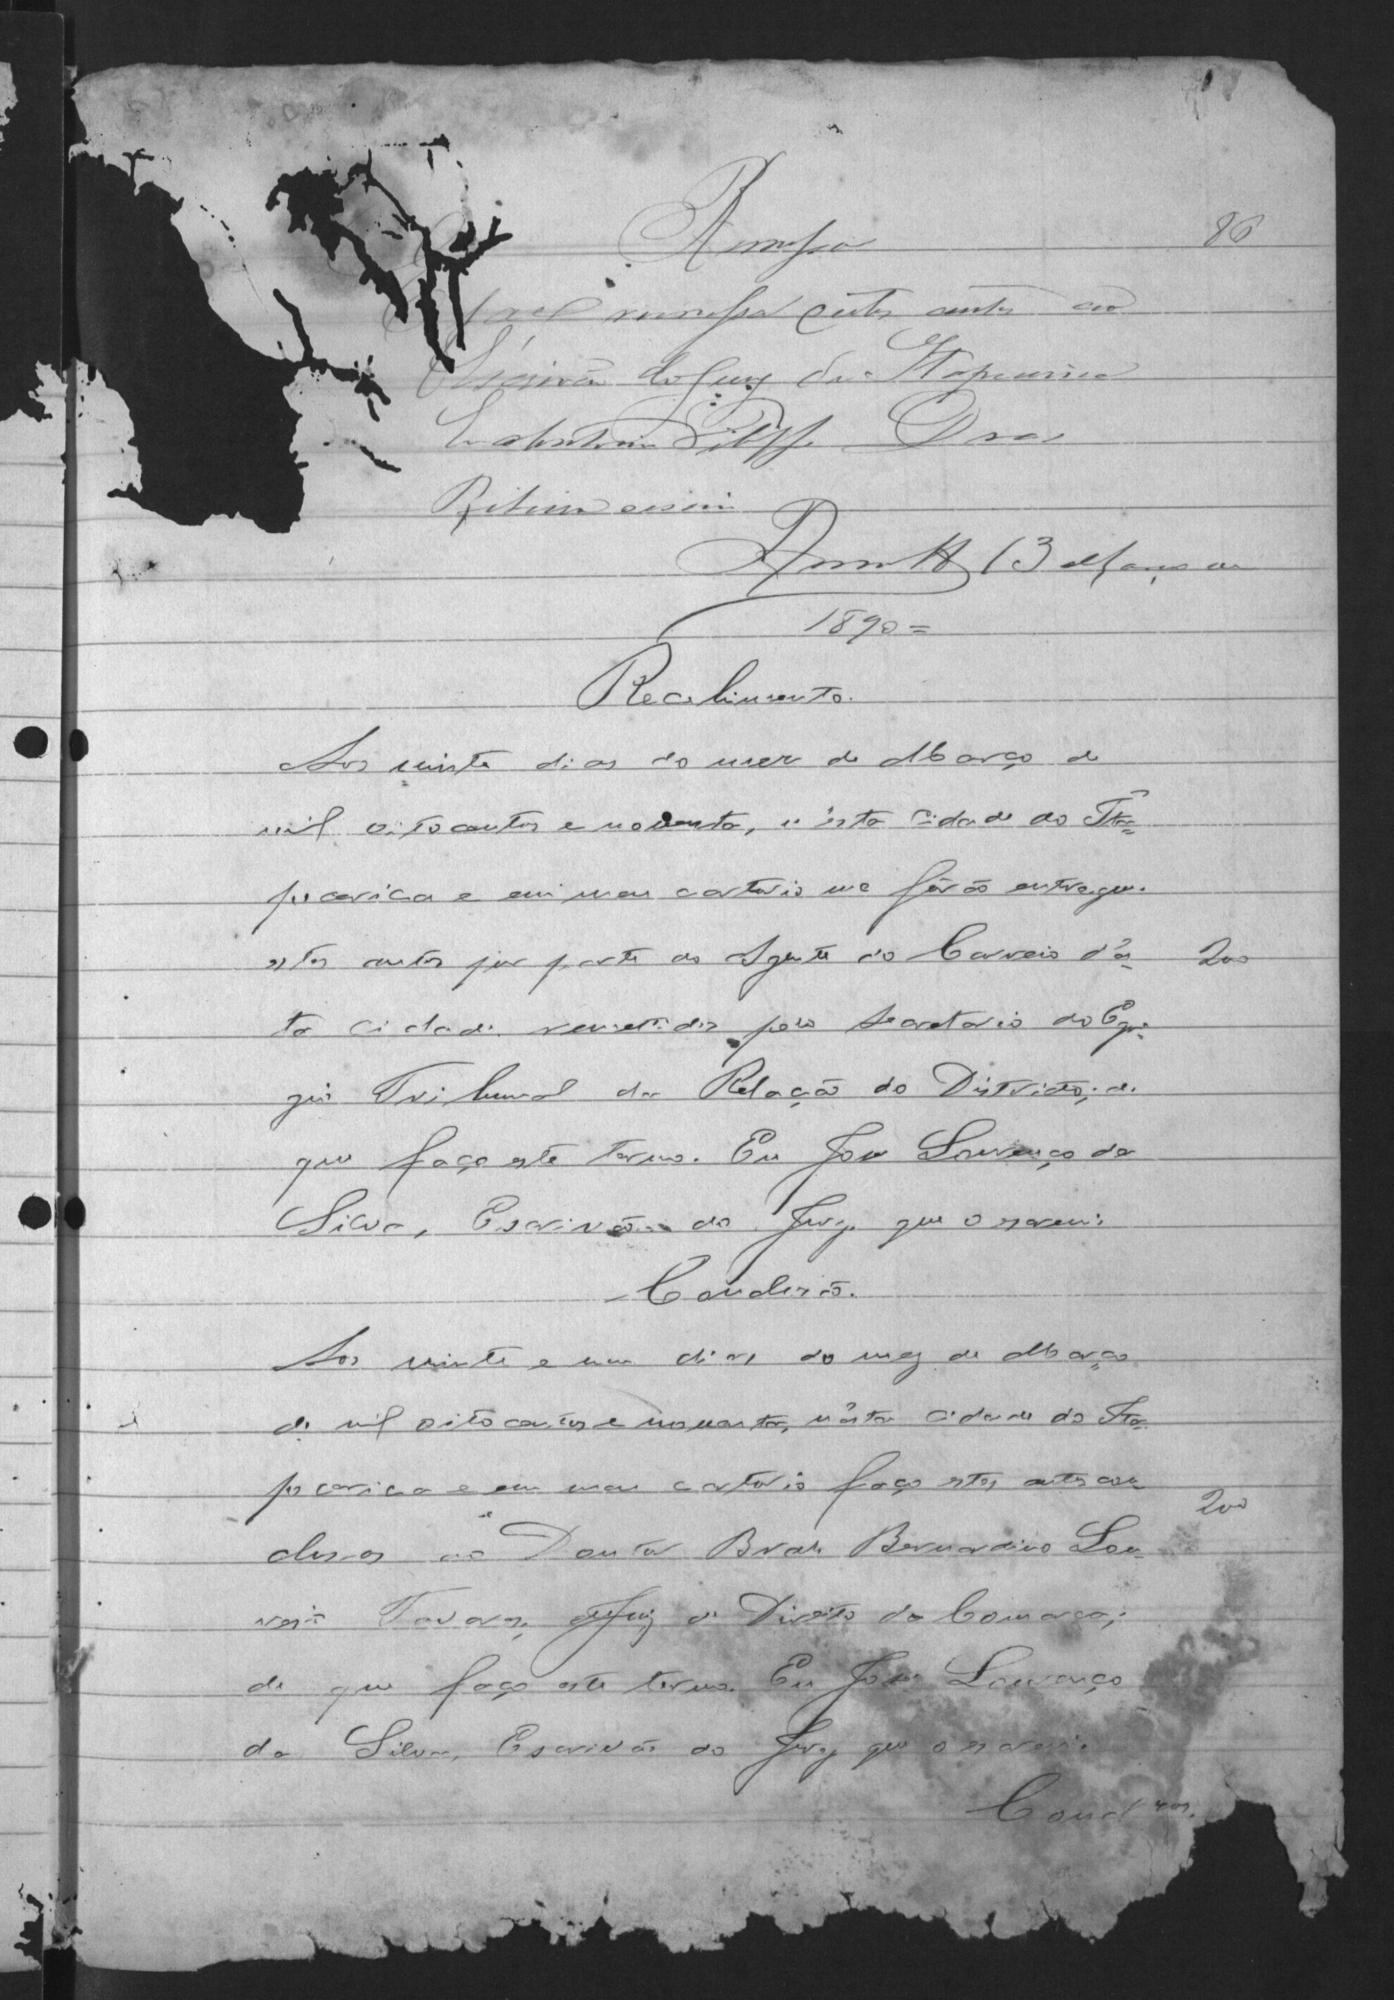 Remessa
86
remessa estes autos ao
Escrivão do Jury da Itapecirica
Ribeiro escrivi
Remetti 13 Março de
1890 =
Recebimento.
Aos vinte dias do mez de Março de
mil oitocentos e noventa, n'esta Cidade do Ita=
pecerica e em meu cartorio me fôrão entregue
estes autos por parte do Agente do Correio d'es
200
ta cidade remettidos pelo Secretario do Egre
gio Tribunal da Relação do Districto; de
que faço este termo. Eu José Lourenço da
Silva, Escrivão do Jury que o escrevi
Conclusão.
Aos vinte e um dias do mez de Março
de mil oitocentos e noventa, n'esta cidade do Ita=
pecerica e em meu cartorio faço estes autos con
200
clusos ao Doutor Braz Bernardino Lou
reiro Tavares, Juiz de Direito da Comarca;
de que faço este termo. Eu José Lourenço
da Silva, Escrivão do Jury que o escrevi.
Conclusos.